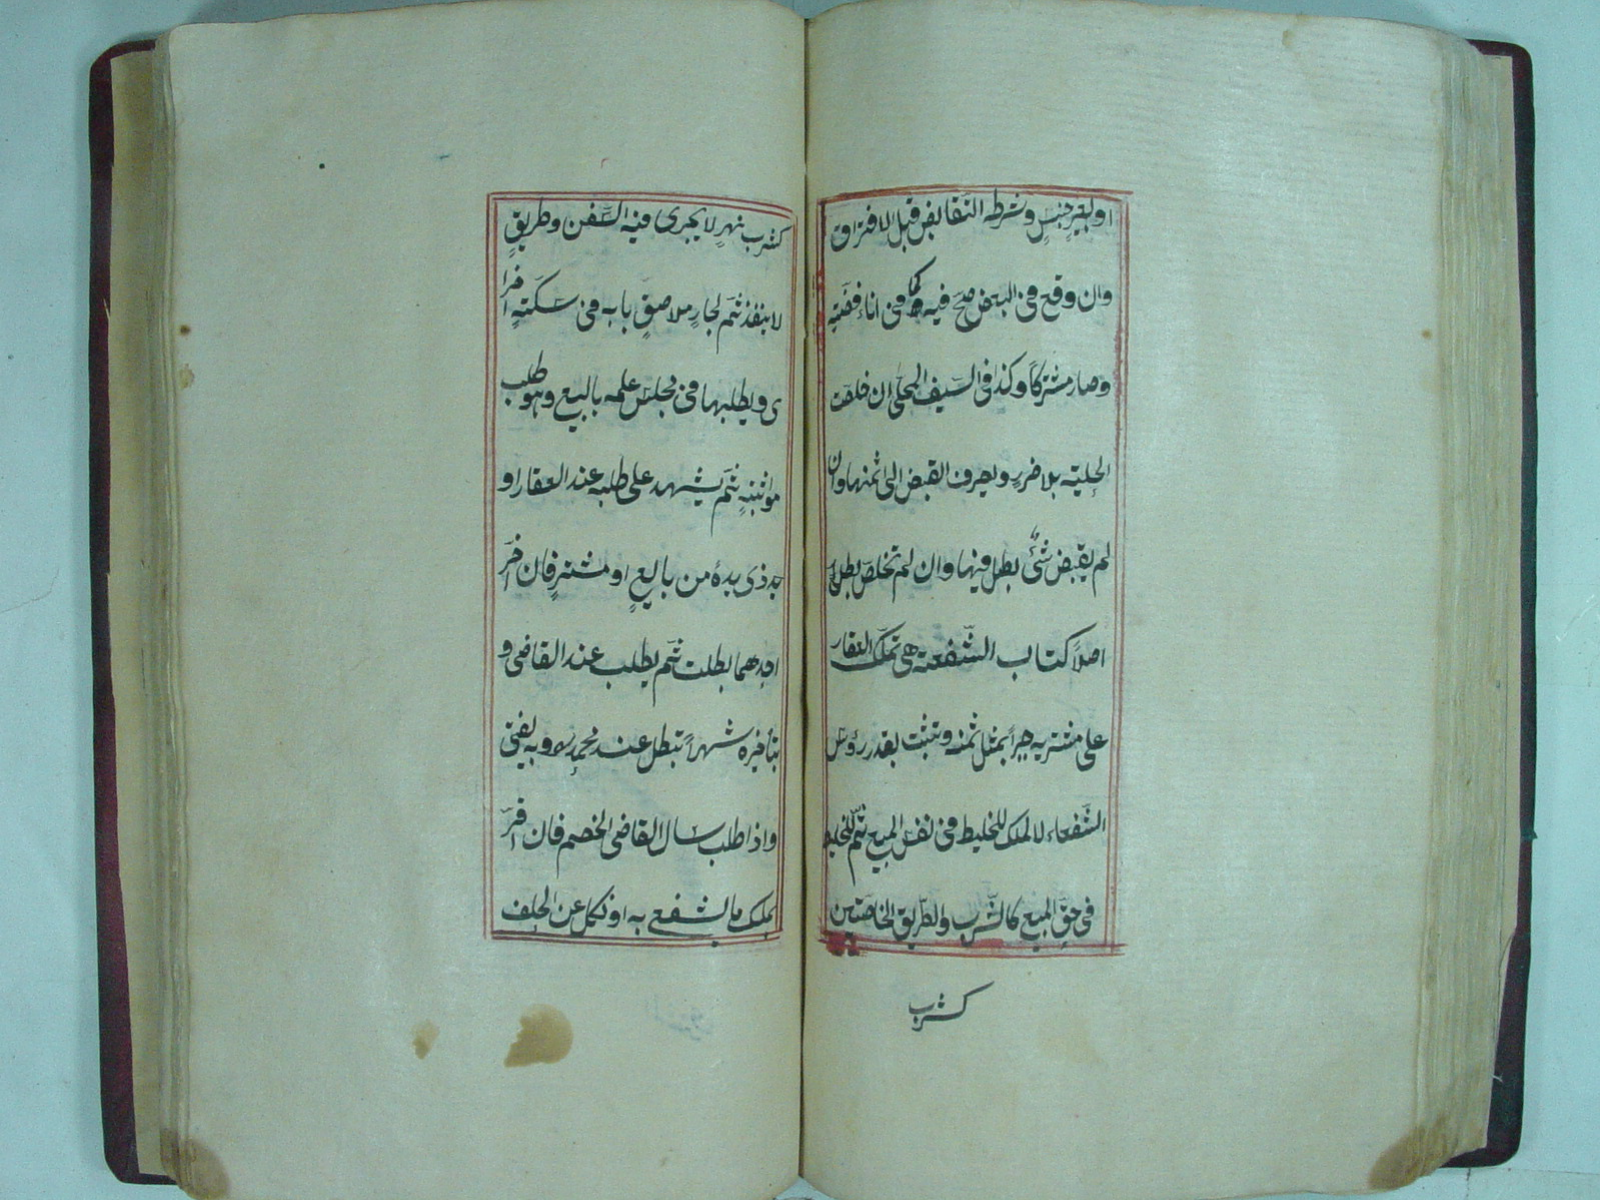 او بغير جنسٍ وشرطه التقابض قبل الافتراق
وان وقع فى البعض صحّ فيه كما فى اناء فضّةٍ
وصار مشتركًا وكذا فى السّيف المحلّى ان خلصت
الحلية بلا ضررٍ ويصرف القبض الى ثمنها وان
لم يقبض شئٌ بطل فيها وان لم تخلص بطل
اصلاً كتاب الشّفعة هى تملّك العقار
على مشتريه جبرًا بمثل ثمنه وتثبت بقدر رؤس
الشّفعاء لا الملك للخليط فى نفس المبيع ثمّ للخليط
فى حقّ المبيع كالشّرب والطّريق الخاصّين
كشرب
كشرب نهرٍ لا يجرى فيه السّفن وطريقٍ
لا ينفذ ثمّ لجارٍ ملاصقٍ بابه فى سكّةٍ اخرا
ى ويطلبها فى مجلس علمه بالبيع وهو طلب
مواثبةٍ ثمّ يشهد على طلبه عند العقار او
عند ذى يده من بايعٍ او مشترٍ فان اخّر
احدهما بطلت ثمّ يطلب عند القاضى و
بتأخيره شهرًا تبطل عند محمّدٍ وبه يفتى
واذا طلب سال القاضى الخصم فان اقرّ
بملك ما يشفع به او نكل عن الحلف